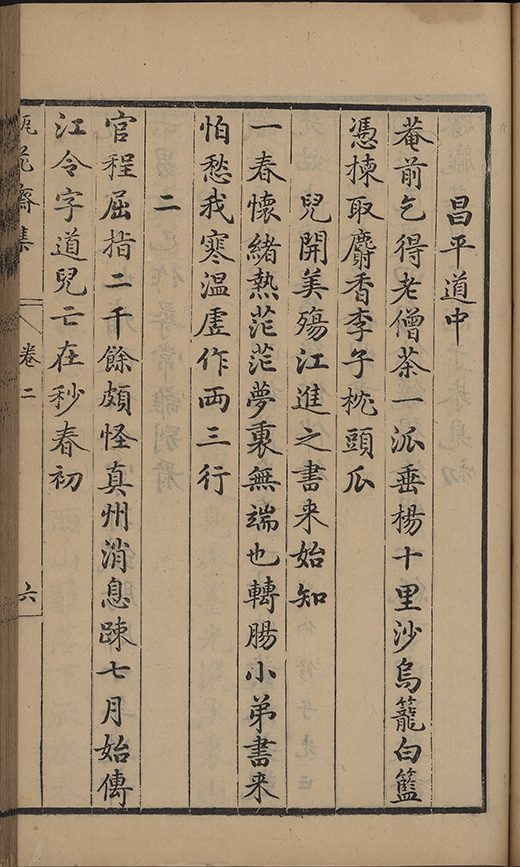 昌平道中
菴前乞得老僧茶一派垂楊十里沙烏籠白籃
憑揀取麝香李子枕頭瓜
兒開美殤江進之書来始知
一春懷緒熱茫茫夢裏無端也轉腸小弟書来
怕愁我寒温虗作両三行
二
官程屈指二千餘頗怪真州消息踈七月始傳
江令字道兒亡在杪春初
瓶花齋集
卷二
六